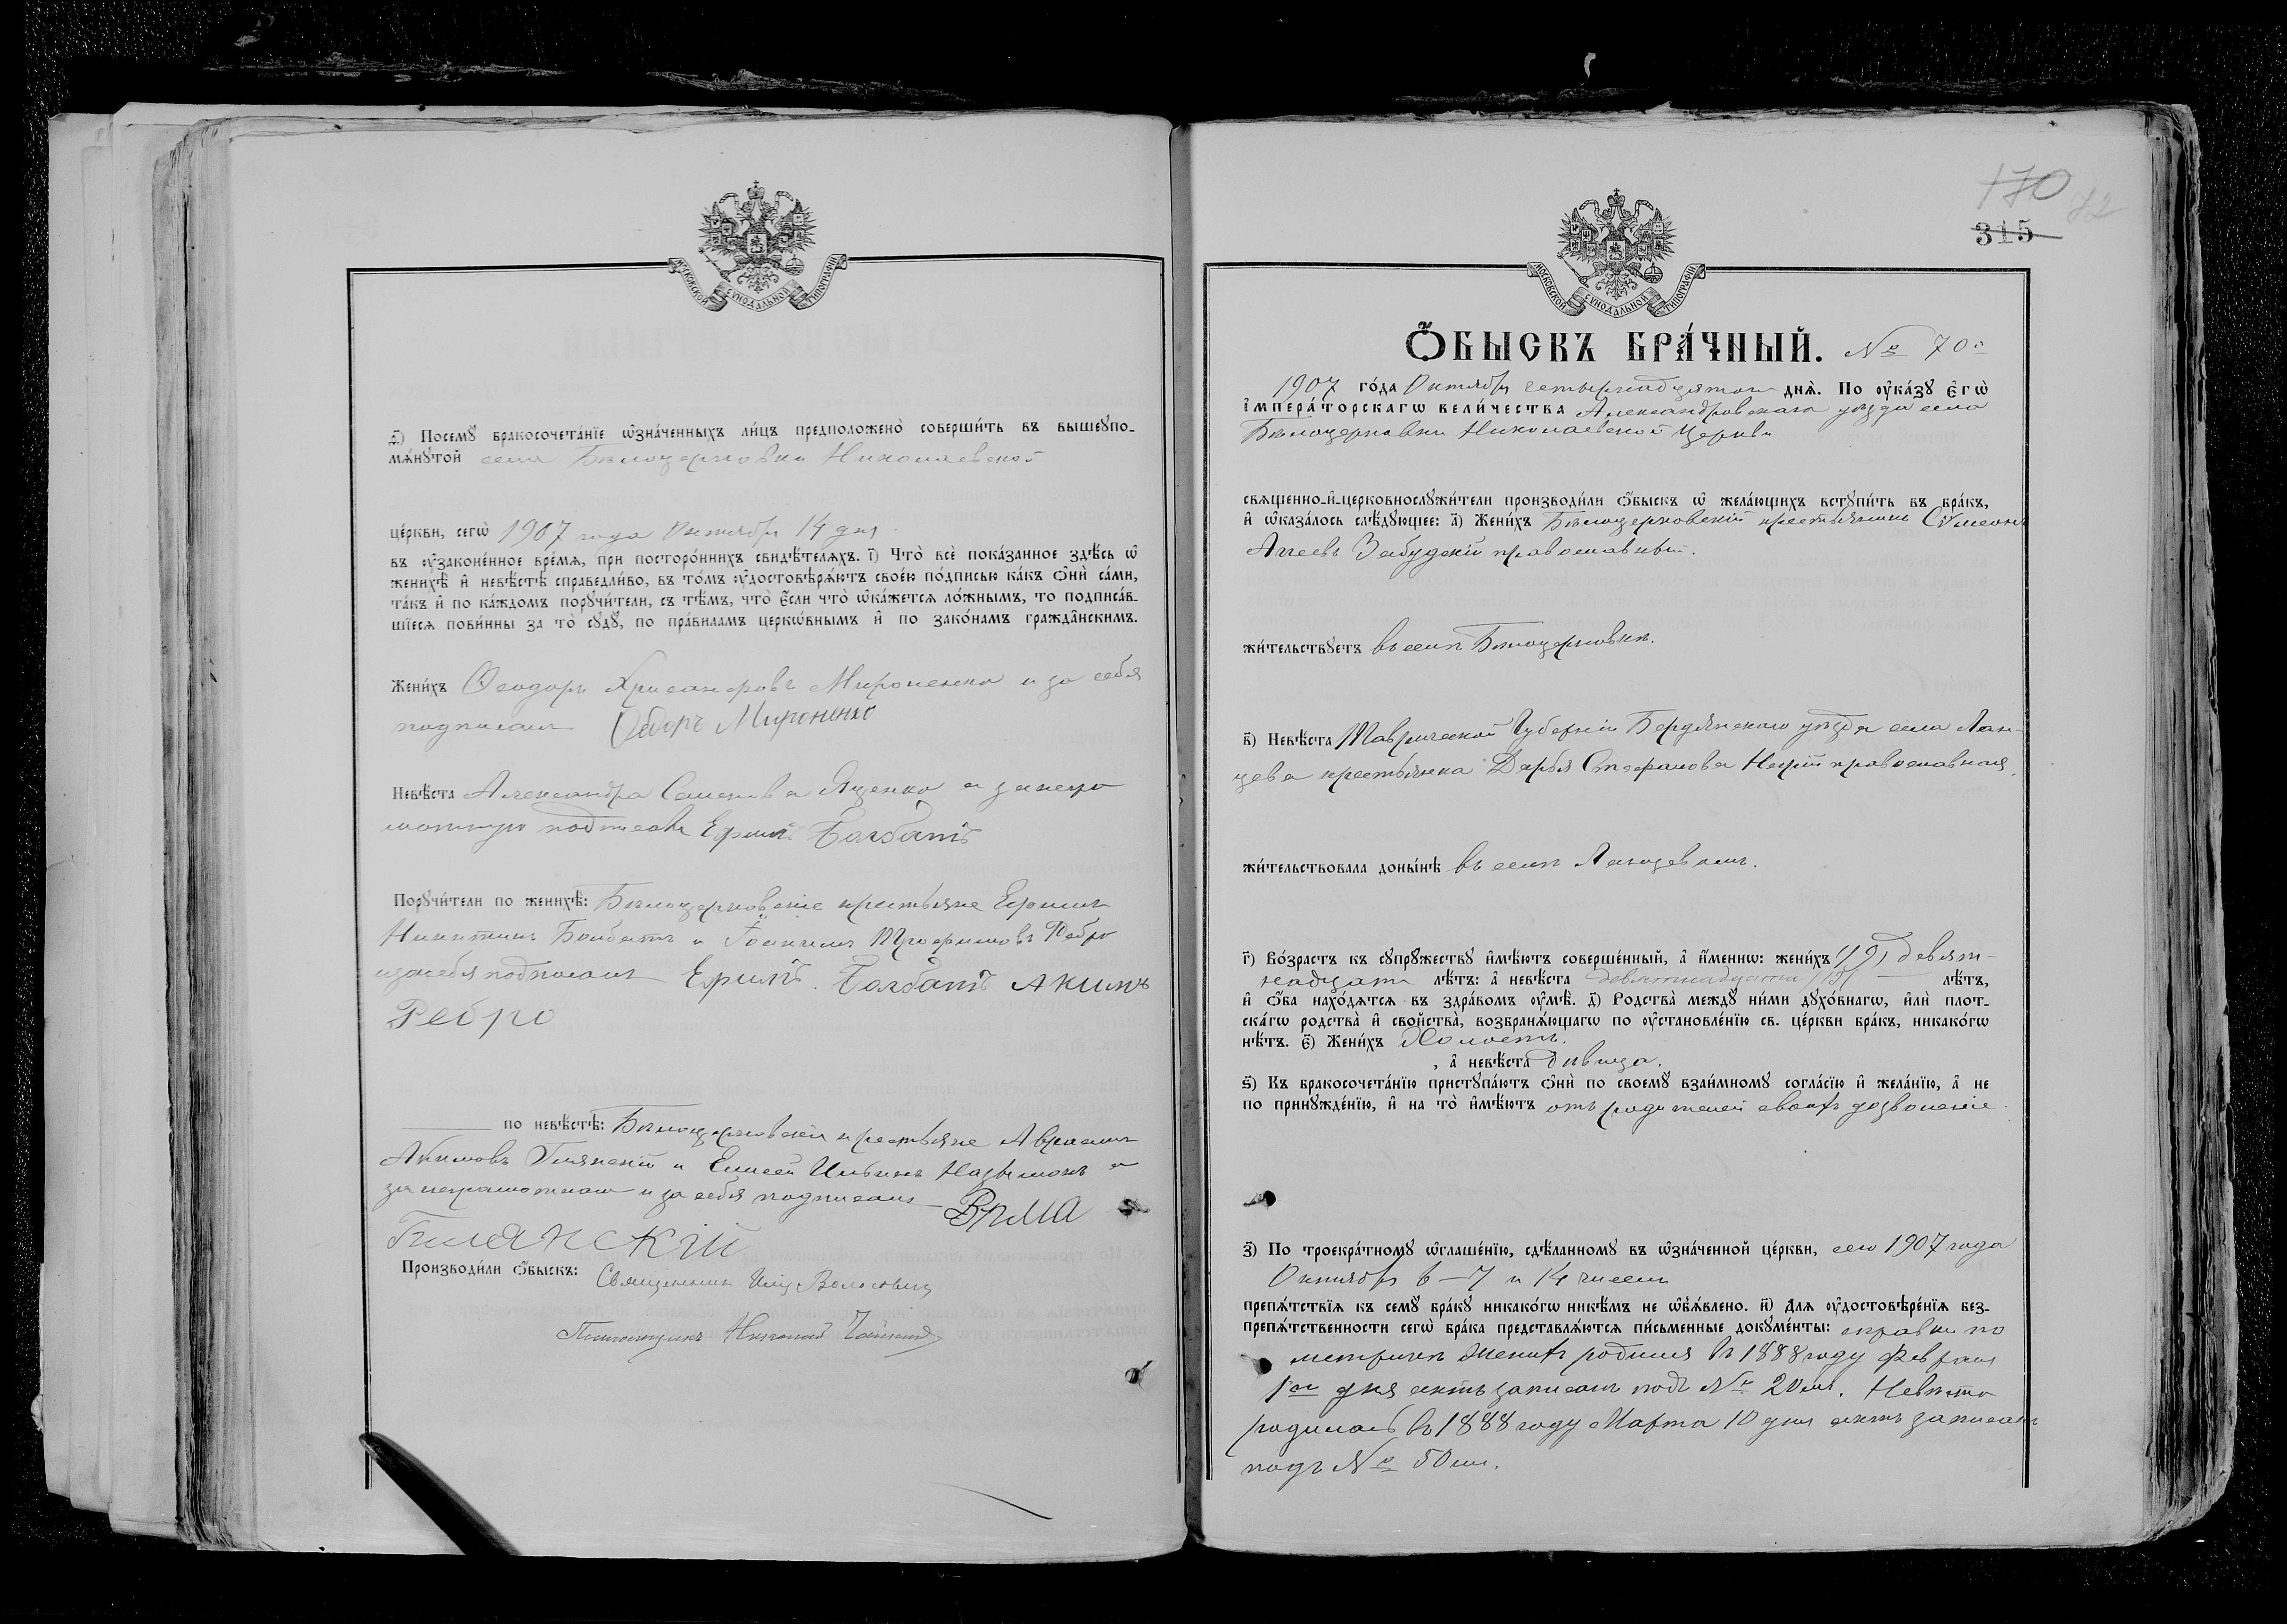 МОСКОВСКОЙ СѴНОДАЛЬНОЙ ТИПОГРАФІИ
Посемꙋ̀ бракосочета́нїе ѡ҆зна́ченныхъ ли́цъ предположено̀ соверши́ть въ вышеꙋпо-
мѧ́нꙋтой села Бѣлоцерковки Николаевской
це́ркви, сегѡ̀ 1907 года Октября 14 дня
въ ѹ҆зако́ненное вре́мѧ, при посторо́ннихъ свидѣ́телѧхъ. і҃) Что̀ всѐ пока́занное здѣ́сь ѡ҆
женихѣ̀ и҆ невѣ́стѣ справедли́во, въ то́мъ ѹ҆достовѣрѧ́ютъ свое́ю по́дписью ка́къ ѻ҆нѝ са́ми,
та́къ и҆ по ка́ждомъ порꙋчи́тели, съ тѣ́мъ, что̀ є҆́сли что̀ ѡ҆ка́жетсѧ ло́жнымъ, то подписа́в-
шїесѧ пови́нны за то̀ сꙋдꙋ̀, по пра́виламъ церко́внымъ и҆ по зако́намъ гражда́нскимъ.
Жени́хъ Ѳеодоръ Хрисанфовъ Мироненко и за себя
подписалъ Ѳедоръ Мироненко
Невѣ́ста Александра Яценко а за негра
мотную подписалъ Ефимъ Балбатъ
Порꙋчи́тели по женихѣ̀: Бѣлоцерковскіе крестьяне Ефимъ
Никитинъ Балбатъ и Іоакимъ Трофимовъ Ребро
и за себя подписали Ефимъ Балбатъ Акимъ
Ребро
по невѣ́стѣ: Бѣлоцерковскіе крестьяне
Акимовъ и Елисей Ильинъ и
за неграмотнаго и за себя подписалъ
Производи́ли ѻ҆́быскъ: Священникъ
Псаломщикъ Николай
170
82
315
МОСКОВСКОЙ СѴНОДАЛЬНОЙ ТИПОГРАФІИ
Ѻ҆́БЫСКЪ БРА́ЧНЫЙ. № 70й
1907 го́да Октября четырнадцатаго днѧ̀. По ѹ҆ка́зꙋ Є҆гѡ̀
І҆мпера́торскагѡ Вели́чества Александровскаго уѣзда села
Бѣлоцерковки Николаевской Церкви
свѧще́нно-и҆-церковнослꙋжи́тели производи́ли ѻ҆́быскъ ѡ҆ жела́ющихъ встꙋпи́ть въ бра́къ,
и҆ ѡ҆каза́лось слѣ́дꙋющее: а҃) Жени́хъ Бѣлоцерковскій крестьянинъ Сѵмеонъ
Аггеевъ Забудскій православный.
жи́тельствꙋетъ въ селѣ Бѣлоцерковкѣ.
в҃) Невѣ́ста Таврической Губерніи Бердянскаго уѣзда села Лан-
цева крестьянка Дарья Стефанова православная
жи́тельствовала доны́нѣ въ селѣ Ланцевомъ.
г҃) Во́зрастъ къ сꙋпрꙋ́жествꙋ и҆мѣ́ютъ соверше́нный, а҆ и҆́меннѡ: жени́хъ (19) девят-
надцати лѣ́тъ: а҆ невѣ́ста девятнадцати (19) лѣ́тъ,
и҆ ѻ҆́ба нахо́дѧтсѧ въ здра́вомъ ѹ҆мѣ̀. д҃) Родства̀ междꙋ̀ ни́ми дꙋхо́внагѡ, и҆лѝ плот-
ска́гѡ родства̀ и҆ свойства̀, возбранѧ́ющагѡ по ѹ҆становле́нїю св. це́ркви бра́къ, никако́гѡ
нѣ́тъ. є҃) Жени́хъ Холостъ.
, а҆ невѣ́ста дѣвица.
ѕ҃) Къ бракосочета́нїю пристꙋпа́ютъ ѻ҆нѝ по своемꙋ̀ взаи́мномꙋ согла́сїю и҆ жела́нїю, а҆ не
по принꙋжде́нїю, и҆ на то̀ и҆мѣ́ютъ отъ родителей своихъ дозволеніе.
з҃) По троекра́тномꙋ ѡ҆глаше́нїю, сдѣ́ланномꙋ въ ѡ҆зна́ченной це́ркви, сего 1907 года
Октября 6-7 и 14 чиселъ
препѧ́тствїѧ къ семꙋ̀ бра́кꙋ никако́гѡ никѣ́мъ не ѡ҆б̾ѧ́влено. и҃) Длѧ ѹ҆достовѣре́нїѧ без-
препѧ́тственности сегѡ̀ бра́ка представлѧ́ютсѧ пи́сьменные докꙋме́нты: справки по
метрикѣ Женихъ родился въ 1888 году Февраля
1го дня актъ записанъ подъ № 20мъ. Невѣста
родилась въ 1888 году Марта 10 дня актъ записанъ
подъ № 50мъ.